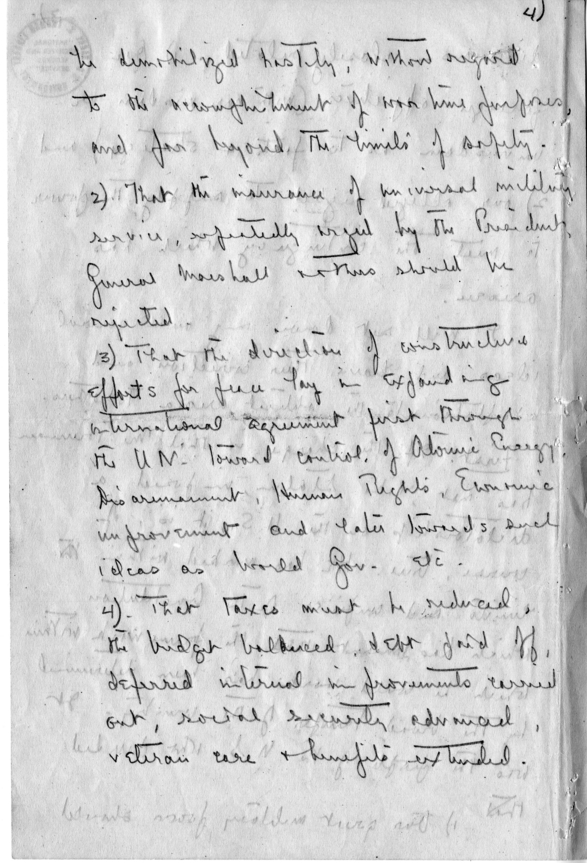 4)
be demobilized hastily, without regard
to the accomplishment of war time purposes,
and far beyond the limits of safety.
2) That the insurance of universal military
service, repeatedly urged by the President,
General Marshall + others should be
rejected
3) That the direction of constructive
efforts for peace lay in expanding
international agreement first through
the U.N. toward control of Atomic Energy,
Disarmament, Human Rights, Economic
improvement and later towards such
ideas as World Gov. etc.
4). That Taxes must be reduced,
the budget balanced, debt paid off,
deferred internal improvements carried
out, social security advanced,
veteran care + benefits extended.